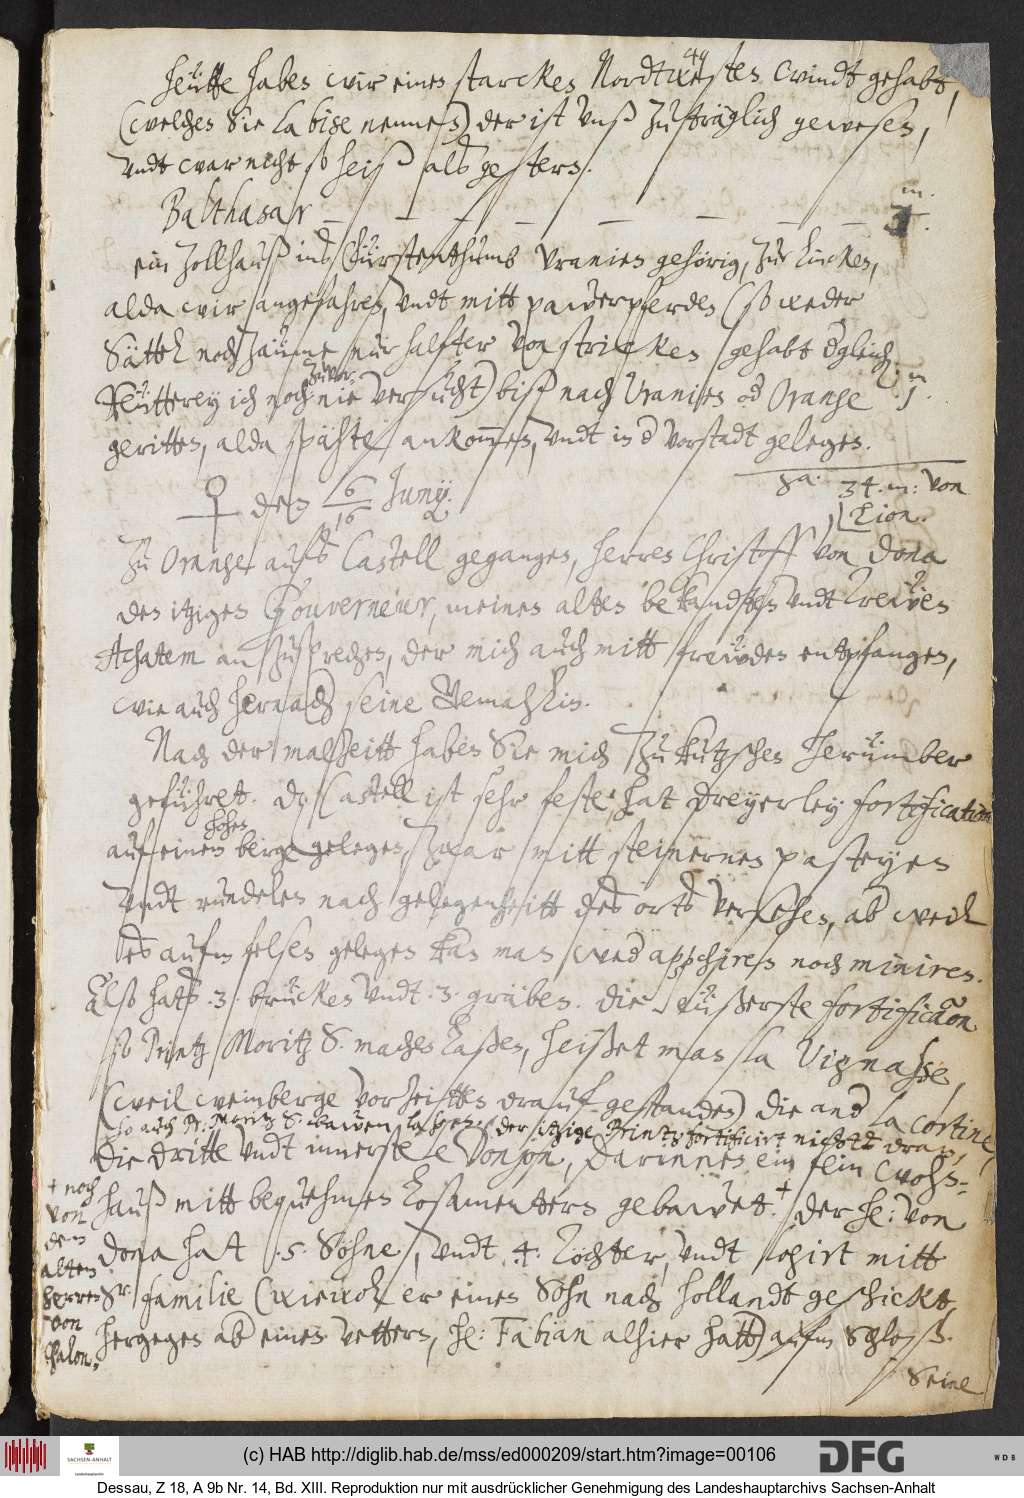 44
Heütte haben wir einen starcken Nordtwesten windt gehabt,
(welchen Sie la bise nennen) der ist vnß zuträglich gewesen,
vndt war nicht so heiß als gestern.
m.
Balthasar – – – – – – – –
ein Zollhauß ins Fürstenthumb Vranien gehörig, zur lincken,
alda wir angefahren, vndt mitt pawerpferden (so weder
Sättel noch zäume nur halfter von stricken gehabt dergleichen
Reütterey ich noch zuvor nie versucht) biß nach Vranien od Orange
m
geritten, alda spähte ankommen, vndt in der Vorstadt gelegen.
Sa. 34. m: von
Lion.
♀ den 6/16 Junij.
Zu Orange aufs Castell gegangen, herren Christoff von Dona
den itzigen Gouverneur, meinen alten bekandten vndt trewen
Achatem anzusprechen, der mich auch mitt frewden entpfangen,
wie auch hernach seine Gemahlin.
Nach der malzeitt haben Sie mich zu kutzschen herümber
geführet. Das Castell ist sehr feste, hatt dreyerley fortification
auf einem hohen berge gelegen, zwar mitt steinernen pasteyen
vndt rundelen nach gelegenheitt des orts versehen, aber weil
es aufm felsen gelegen kan man weder approchiren noch miniren.
Also hats .3. brücken vndt .3. gräben. die eüßerste fortification
so Printz Moritz S. machen laßen, heißet man la Vignasse,
(weil weinberge vorzeitten drauf gestanden) die ander la cortine,
so auch Pr: Moritz S. bawen laßen: (der itzige Printz fortificirt nichts dran,
die dritte vndt innerste le Donjon, darinnen ein fein wohn=
hauß mitt bequehmen losamentern gebawet.+ der he: von
+ noch
von
den
alten
herren
von
Chalon.
Dona hat .5. Söhne, vndt .4. Töchter, vndt logirt mitt
Sr. familie (wiewol er einen Sohn nach hollandt geschickt,
hergegen aber einen vettern, he: Fabian alhier hatt) aufm Schloß.
Seine
(c) HAB http://diglib.hab.de/mss/ed000209/start.htm?image=00106
SACHSEN-ANHALT
DFG
WDB
Dessau, Z 18, A 9b Nr. 14, Bd. XIII. Reproduktion nur mit ausdrücklicher Genehmigung des Landeshauptarchivs Sachsen-Anhalt